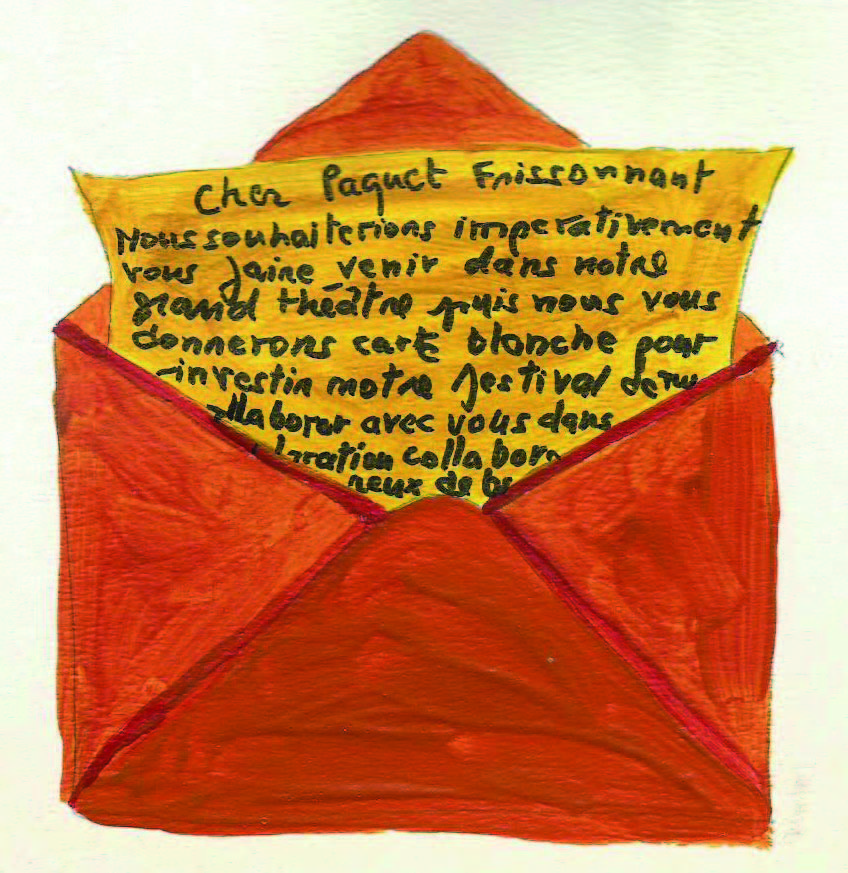 Cher Paquet Frissonnant
Nous souhaiterions imperativement
vous faire venir dans notre
grand théâtre puis nous vous
donnerons carte blanche pour
investir notre festival
ollaborer avec vous dans
laration collabor
neux de